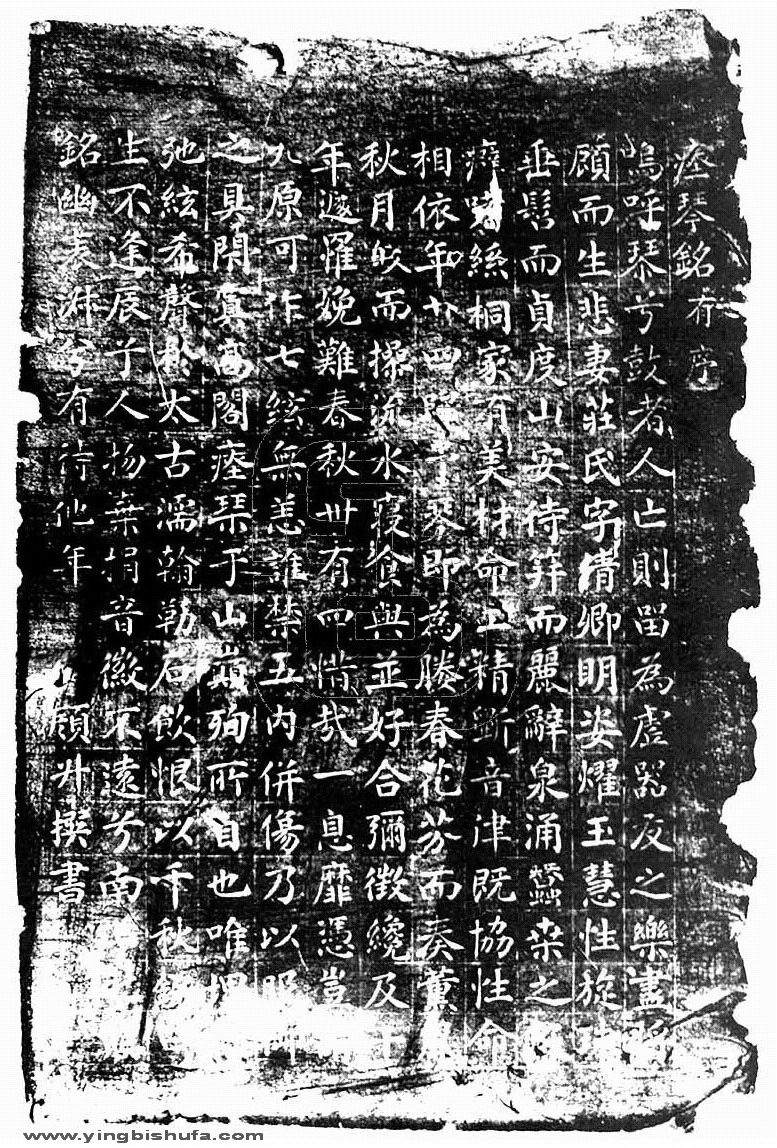 瘞琴銘 有序
嗚呼琴兮鼓者人亡則留為虛器友之樂盡
顧而生悲妻莊氏字倩卿明姿燿玉慧性旋
垂髫而貞度山安待笄而麗辭泉涌蠶桑之
癖躭絲桐家有美材命工精斲音律既協性命
相依年廿四 琴即為媵春花芬而奏薰
秋月皎而操流水寢食與並好合彌徵纔及
年遽罹娩難春秋卅有四惜哉一息靡憑豈
九原可作七絃無恙誰禁五內併傷乃以
之具閉寘高閣瘞琴于山巔殉所自也唯
弛絃希聲於太古濡翰勒石飲恨以千秋
生不逢辰兮人物棄捐音徽不遠兮南
銘幽表淋兮有待他年 顧升撰書
www.yingbishufa.com